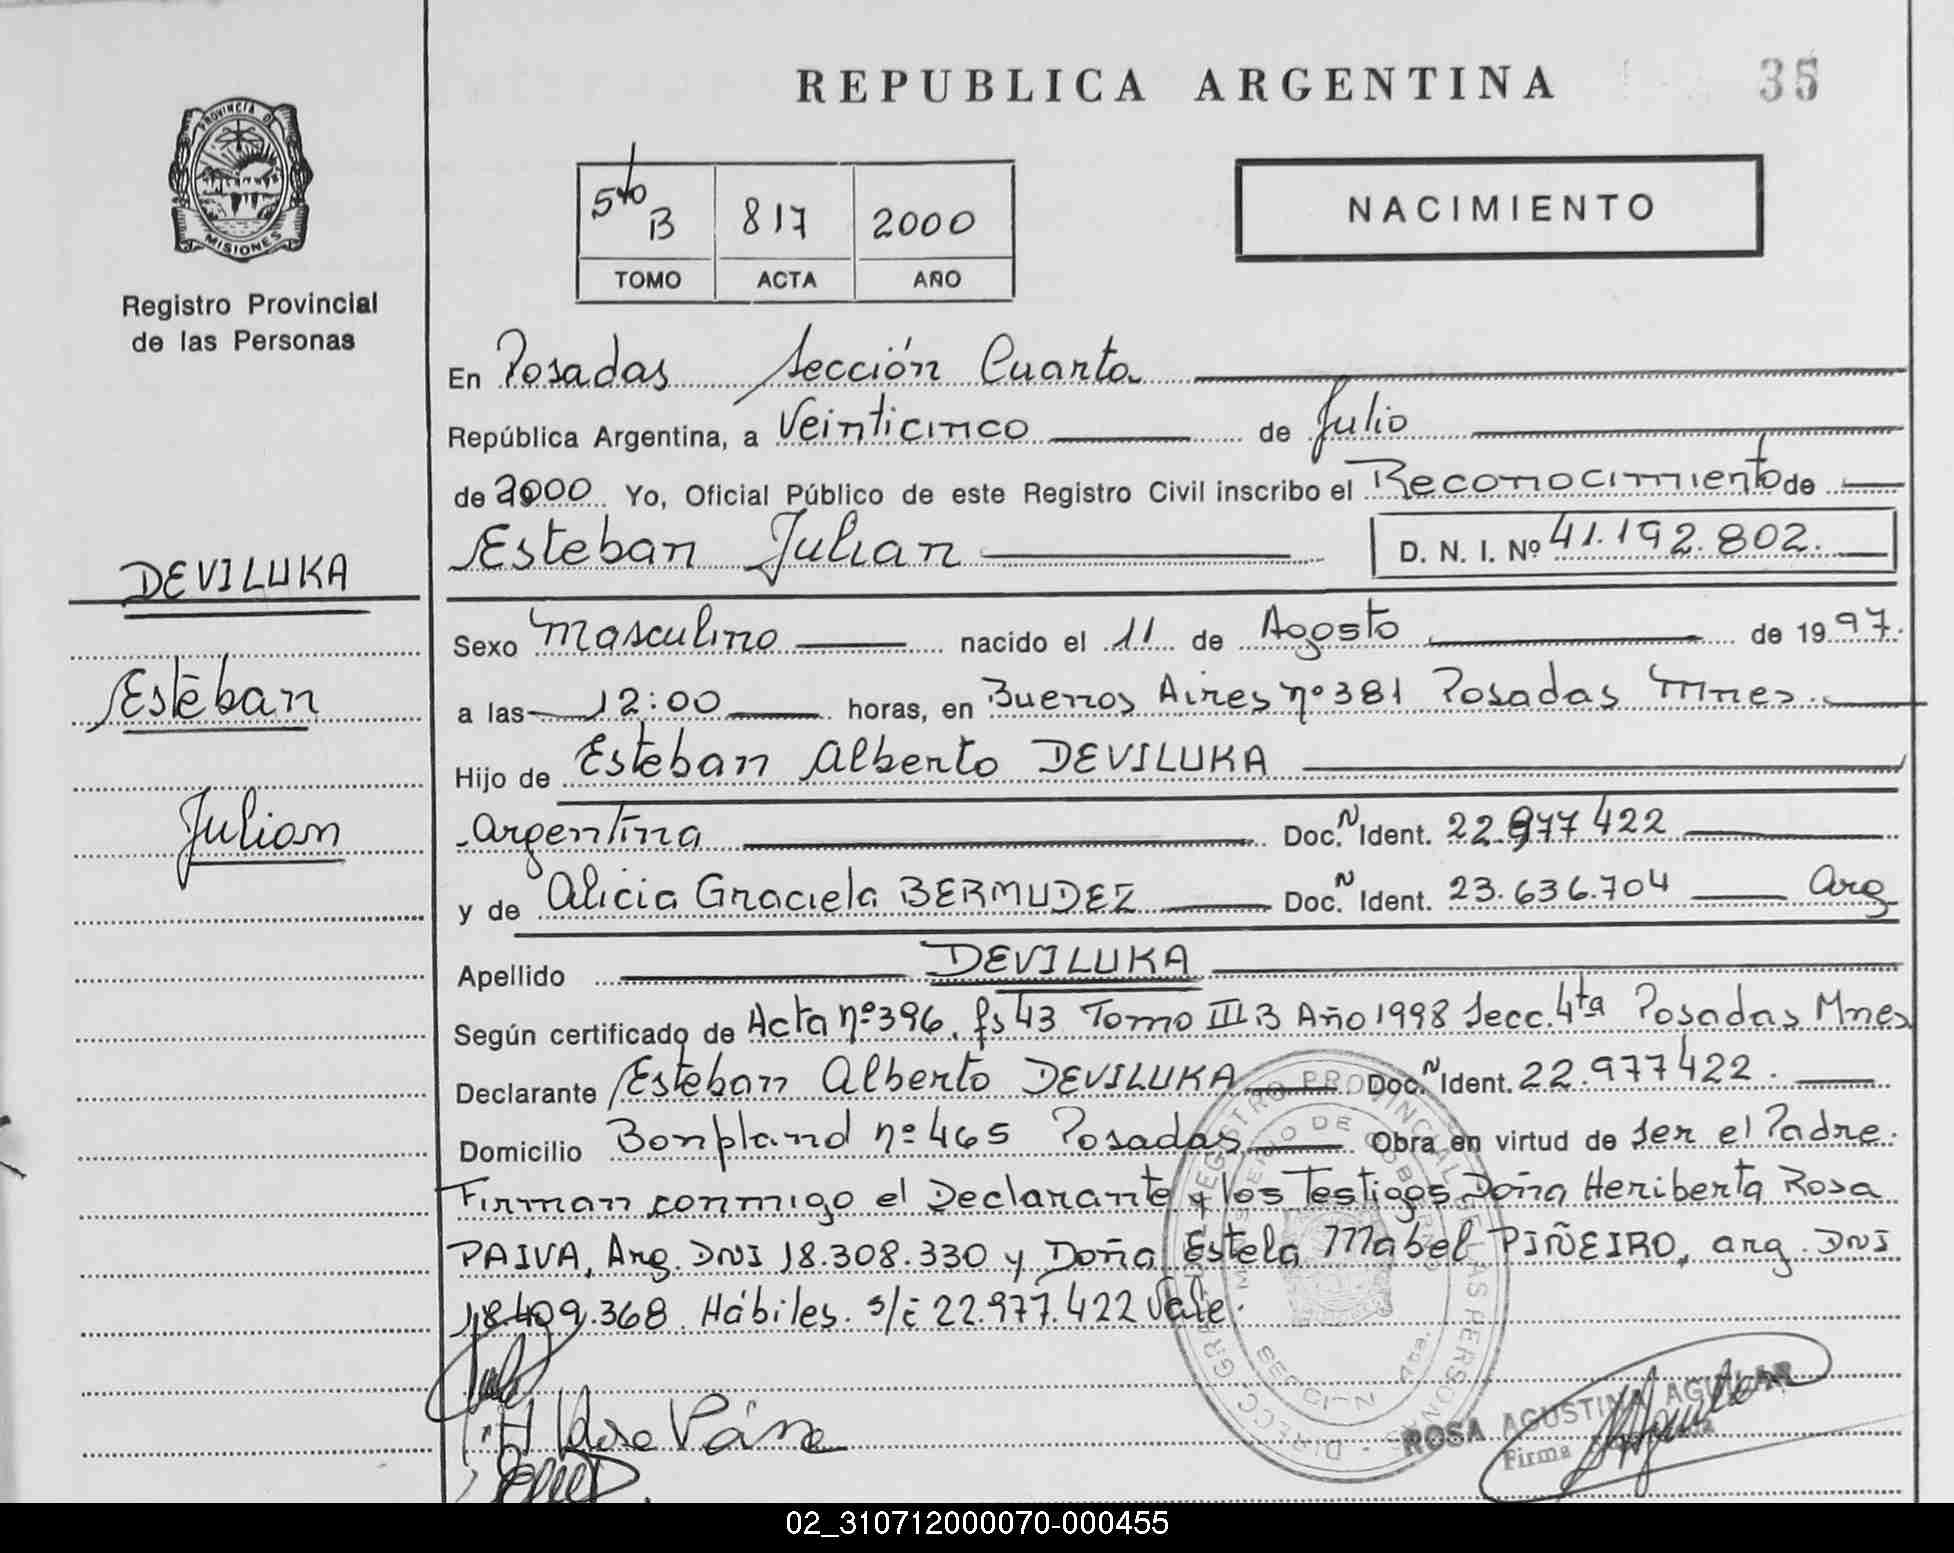 REPUBLICA ARGENTINA
35
PROVINCIA DE
MISIONES
Registro Provincial
de las Personas
5to B 817 2000
TOMO ACTA AÑO
NACIMIENTO
En Posadas Sección Cuarta
República Argentina, a Veinticinco de Julio
de 2000 Yo, Oficial Público de este Registro Civil inscribo el Reconocimiento de
Esteban Julian D. N. I. Nº 41.192.802.
DEVILUKA
Esteban
Julian
Sexo Masculino nacido el 11 de Agosto de 1997.
a las 12:00 horas, en Buenos Aires nº 381 Posadas Mnes.
Hijo de Esteban Alberto DEVILUKA
Argentina Doc. N Ident. 22.977 422
y de Alicia Graciela BERMUDEZ Doc. N Ident. 23.636.704 Arg
Apellido DEVILUKA
Según certificado de Acta nº 396. fs 43 Tomo III B Año 1998 Secc. 4ta Posadas Mnes
Declarante Esteban Alberto DEVILUKA Doc. N Ident. 22.977422.
Domicilio Bonpland nº 465 Posadas Obra en virtud de ser el Padre.
Firman conmigo el Declarante y los Testigos Doña Heriberta Rosa
PAIVA, Arg. DNI 18.308.330 y Doña Estela Mabel PIÑEIRO, arg. DNI
18.409.368 Hábiles. s/i 22.977.422 Vale.
REGISTRO PROVINCIAL DE LAS PERSONAS
MINISTERIO DE GOBIERNO
SECCION 4ta.
ROSA AGUSTINA AGUILAR
Firma
02_310712000070-000455